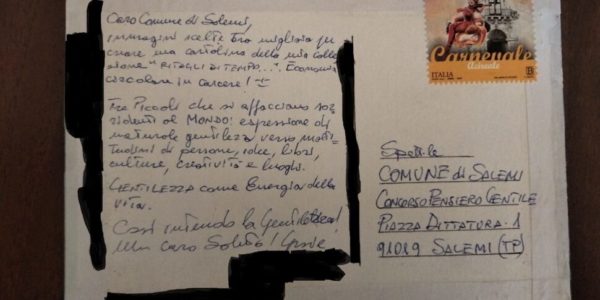 Caro Comune di Salemi,
immagini scelte tra migliaia per
creare una cartolina della mia colle
zione "RITAGLI DI TEMPO...". Economia
circolare in carcere!
Tre Piccoli che si affacciano sor
ridenti al MONDO: espressione di
naturale gentilezza verso
di persone, idee, libri,
culture, creatività e luoghi.
GENTILEZZA come Energia della
vita.
Così intendo la Gentilezza!
Un caro Saluto! Grazie,
Carnevale
Acireale
ITALIA
B
Spett.le
COMUNE di SALEMI
CONCORSO PENSIERO GENTILE
PIAZZA DITTATURA 1
91019 SALEMI (TP)